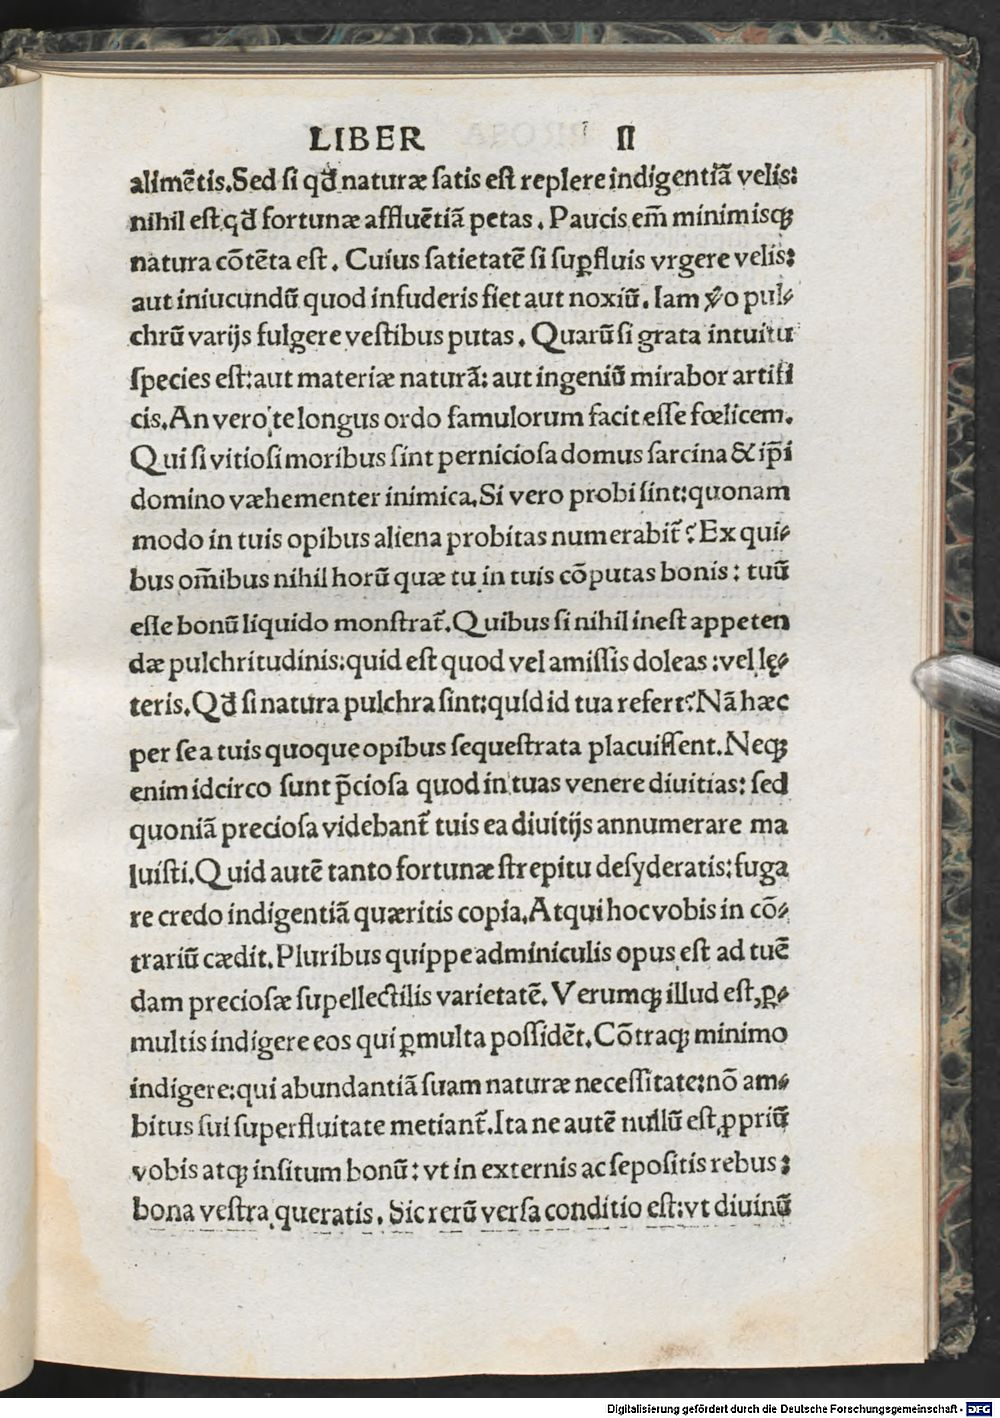 LIBER II
alimẽtis.Sed ſi qđ naturæ ſatis eſt replere indigentiã velis:
nihil eſt qđ fortunæ affluẽtiã petas. Paucis em̃ minimisqꝫ
natura cõtẽta eſt. Cuius ſatietatẽ ſi ſuꝑfluis vrgere velis:
aut iniucundũ quod infuderis fiet aut noxiũ. Iam ṽo pul⸗
chrũ varijs fulgere veſtibus putas. Quarũ ſi grata intuitu
ſpecies eſt:aut materiæ naturã: aut ingeniũ mirabor artifi
cis.An vero te longus ordo famulorum facit eſſe fœlicem.
Qui ſi vitioſi moribus ſint pernicioſa domus ſarcina & ip̃i
domino væhementer inimica.Si vero probi ſint:quonam
modo in tuis opibus aliena probitas numerabit᷑? Ex qui⸗
bus om̃ibus nihil horũ quæ tu in tuis cõputas bonis: tuũ
eſſe bonũ liquido monſtrat᷑.Quibus ſi nihil ineſt appeten
dæ pulchritudinis:quid eſt quod vel amiſſis doleas:vel lę⸗
teris.Qđ ſi natura pulchra ſint:quid id tua refert?Nã hæc
per ſe a tuis quoque opibus ſequeſtrata placuiſſent.Neqꝫ
enim idcirco ſunt p̃cioſa quod in tuas venere diuitias: ſed
quoniã precioſa videbant᷑ tuis ea diuitijs annumerare ma
luiſti.Quid autẽ tanto fortunæ ſtrepitu deſyderatis:fuga
re credo indigentiã quæritis copia.Atqui hoc vobis in cõ⸗
trariũ cædit.Pluribus quippe adminiculis opus eſt ad tuẽ
dam precioſæ ſupellectilis varietatẽ. Verumqꝫ illud eſt,ꝑ⸗
multis indigere eos qui ꝑmulta poſſidẽt.Cõtraqꝫ minimo
indigere:qui abundantiã ſuam naturæ neceſſitate:nõ am⸗
bitus ſui ſuperfluitate metiant᷑.Ita ne autẽ nullũ eſt ꝓpriũ
vobis atqꝫ inſitum bonũ: vt in externis ac ſepoſitis rebus:
bona veſtra queratis. Sic rerũ verſa conditio eſt:vt diuinũ
Digitalisierung gefördert durch die Deutsche Forschungsgemeinschaft - DFG